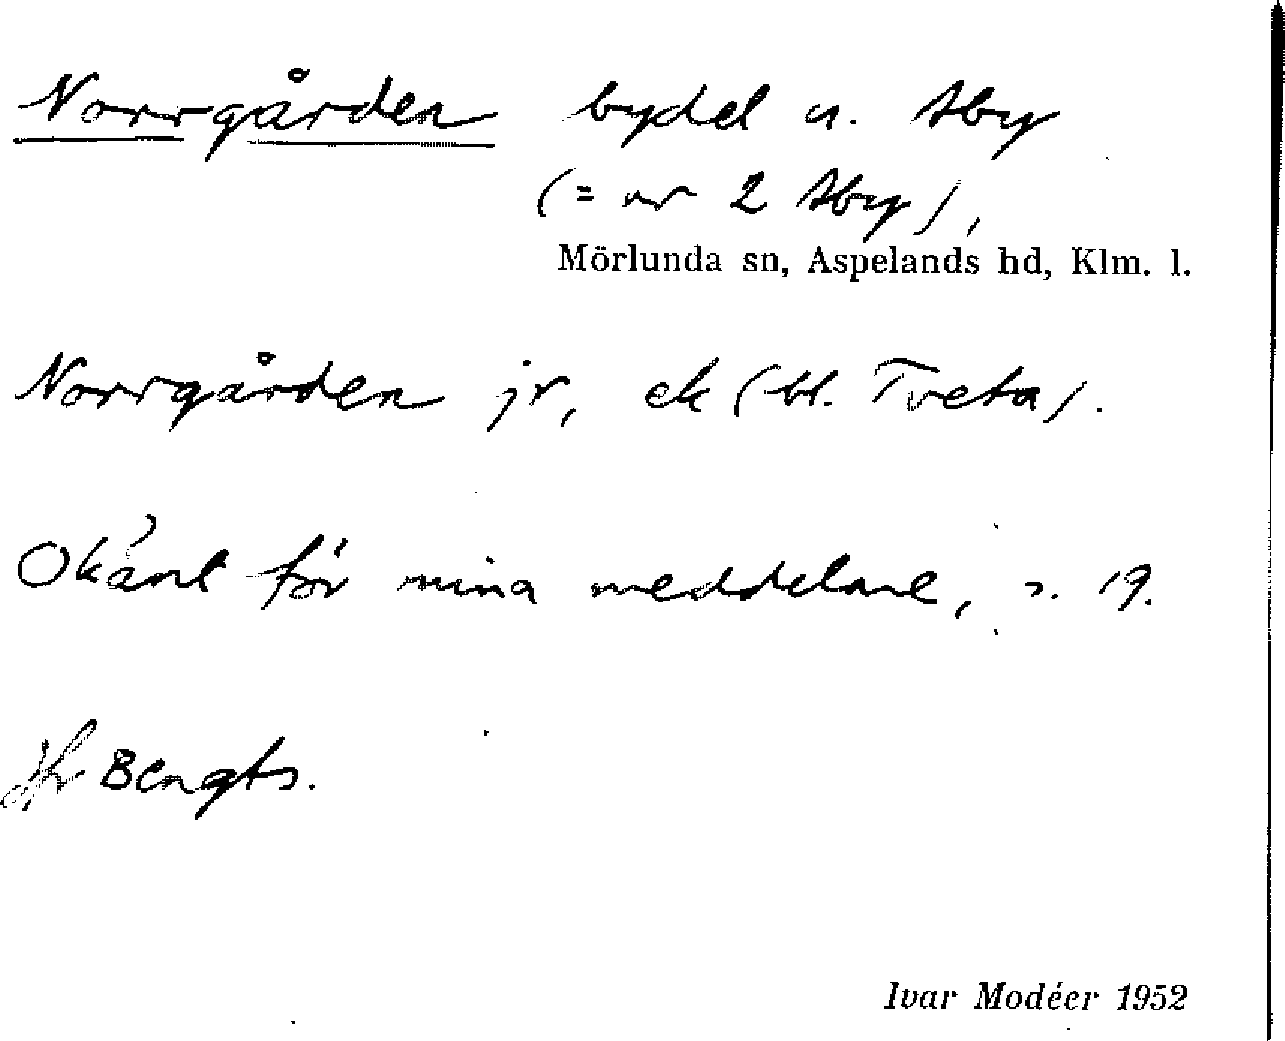 Norrgården bydel u. Åby
(= nr 2 Åby),
Mörlunda sn, Aspelands hd, Klm. l.
Norrgården jr, ek (bl. Tveta).
Okänt för mina meddelare, s. 19.
Jfr Bengts.
Ivar Modéer 1952